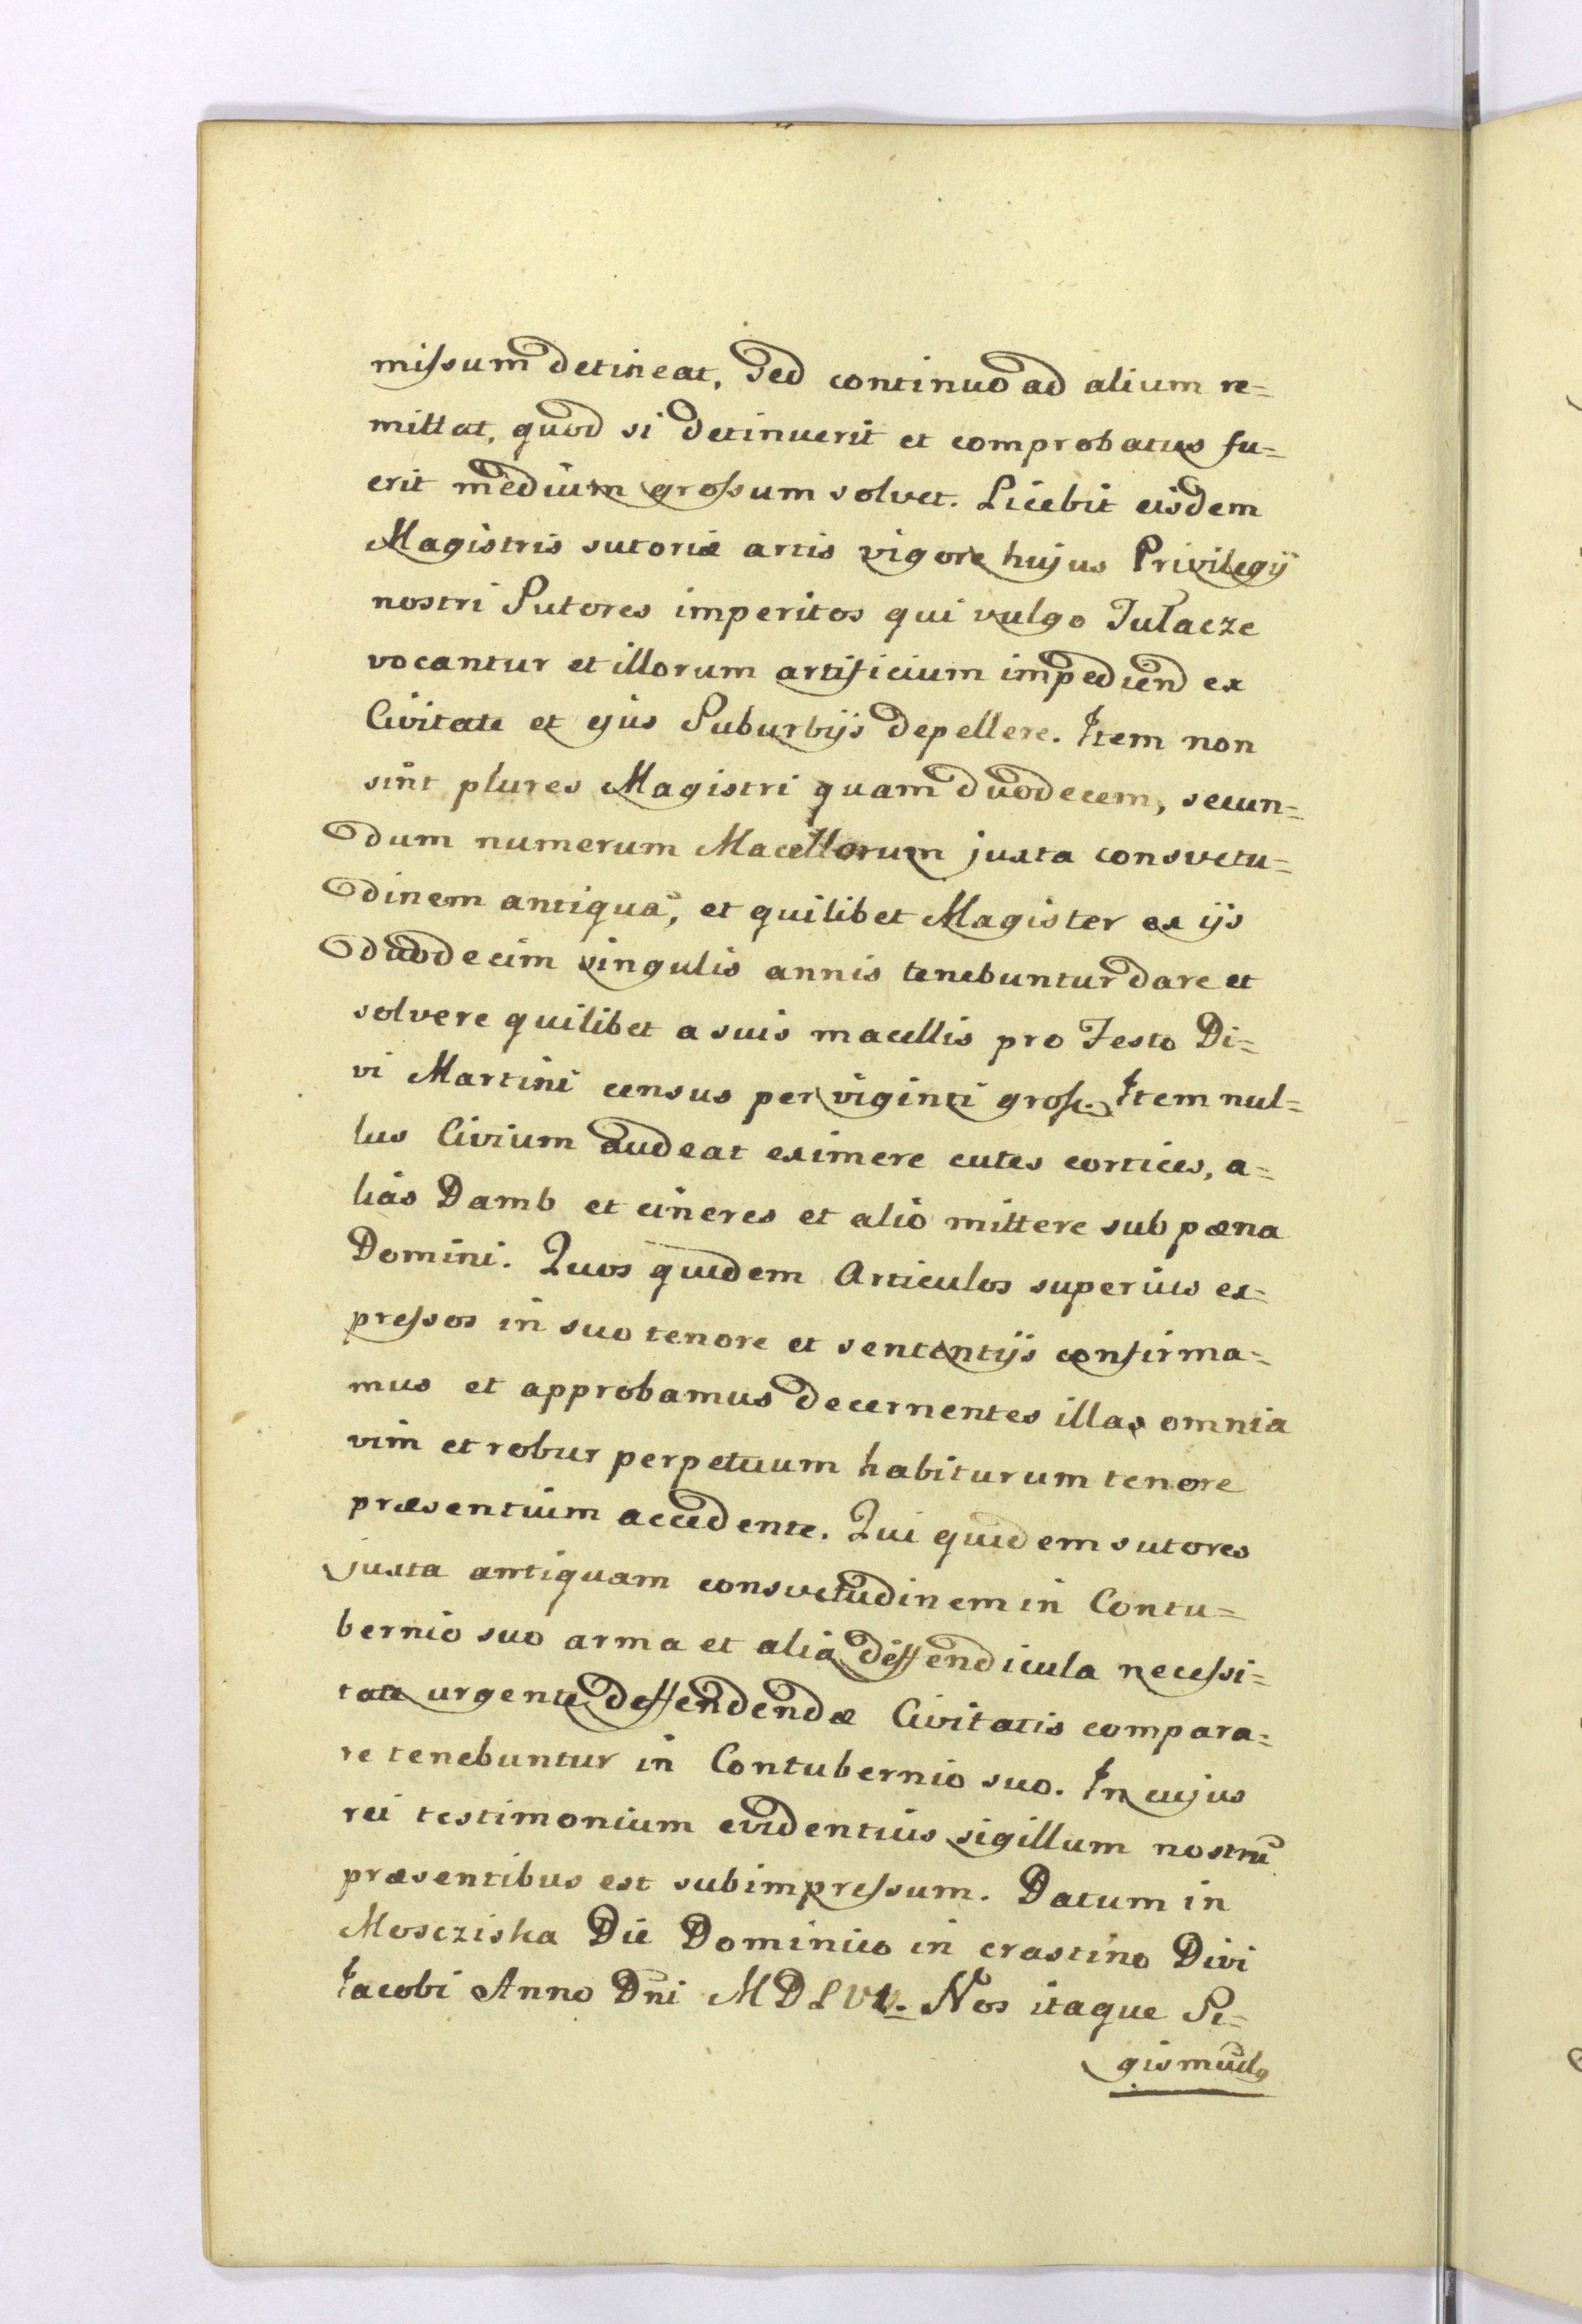 missum detineat, sed continuo ad alium re=
mittat, quod si detinuerit et comprobatus fu=
erit medium grossum solvet. Licebit eisdem
Magistris sutoriæ artis vigore hujus Privilegij
nostri Sutores imperitos qui vulgo
vocantur et illorum artificium impediend ex
Civitate et ejus Suburbijs depellere. Item non
sint plures Magistri quam duodecem, secun=
dum numerum Macellorum juxta consvetu=
dinem antiquã, et quilibet Magister ex ijs
duodecim singulis annis tenebuntur dare et
solvere quilibet a suis macellis pro Festo Di=
vi Martini census per viginti gross. Item nul=
lus Civium audeat eximere cutes cortices, a=
lias Damb et cineres et alio mittere sub pæna
Domini. Quos quidem Articulos superius ex=
pressos in suo tenore et sententijs confirma=
mus et approbamus decernentes illas omnia
vim et robur perpetuum habiturum tenore
præsentium accedente. Qui quidem sutores
juxta antiquam consvetudinem in Contu=
bernio suo arma et alia deffendicula necessi=
tate urgente deffendendæ Civitatis compara=
re tenebuntur in Contubernio suo. In cujus
rei testimonium evidentius sigillum nostrũ
præsentibus est subimpressum. Datum in
Moscziska Die Dominico in crastino Divi
Iacobi Anno Dni Nos itaque Si=
gismũdg